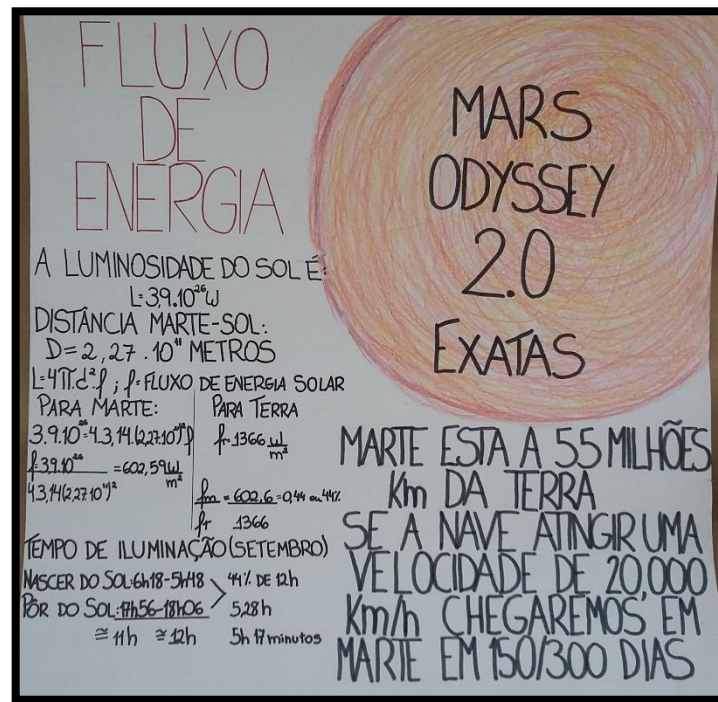 FLUXO
DE
ENERGIA
A LUMINOSIDADE DO SOL É:
L=3,9.10²⁶W
DISTÂNCIA MARTE-SOL:
D=2,27.10¹¹ METROS
L=4π.d².f ; f=FLUXO DE ENERGIA SOLAR
PARA MARTE:
3.9.10²⁶=4.3,14.(2,27.10¹¹)²f
f=3,9.10²⁶ =602,59 W/m²
4.3,14(2,27.10¹¹)²
PARA TERRA
f=1366 W/m²
fm = 602,6 =0,44 ou 44%
fT 1366
TEMPO DE ILUMINAÇÃO (SETEMBRO)
NASCER DO SOL:6h18-5h48
PÔR DO SOL:17h56-18h06
≅11h ≅12h
44% DE 12h
5,28h
5h 17 minutos
MARS
ODYSSEY
2.0
EXATAS
MARTE ESTA A 55 MILHÕES
Km DA TERRA
SE A NAVE ATINGIR UMA
VELOCIDADE DE 20,000
Km/h CHEGAREMOS EM
MARTE EM 150/300 DIAS